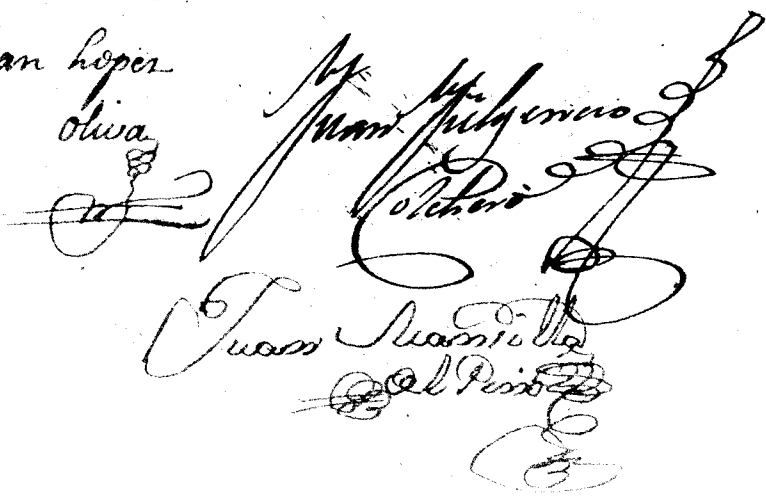 an Lopez
Oliva
Juan Fulgencio
Colchero
Juan Mansilla
del Pino